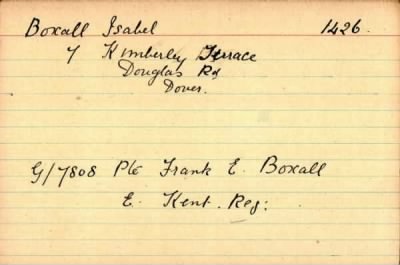 Boxall Isabel 1426.
7 Kimberley Terrace
Douglas Rd
Dover.
G/7808 Pte Frank E. Boxall
E. Kent. Reg: